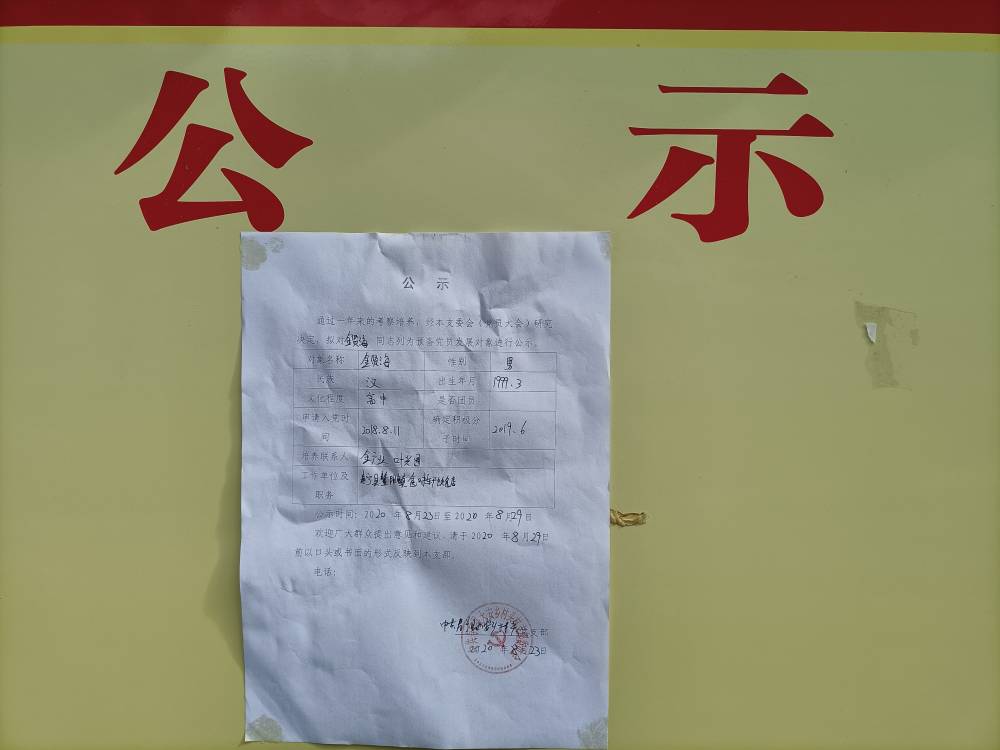 公 示
公 示
通过一年来的考察培养，经本支委会（党员大会）研究
决定，拟对金贤海同志列为预备党员发展对象进行公示。
对象名称 金贤海 性别 男
民族 汉 出生年月 1999.3
文化程度 高中 是否团员
申请入党时间 2018.8.11 确定积极分子时间 2019.6
培养联系人 金
工作单位及职务
公示时间：2020 年 8 月 23日至 2020 年 8 月 29日
欢迎广大群众提出意见和建议，请于 2020 年 8 月 29日
前以口头或书面的形式反映到本支部。
电话：
支部
2020 年 8 月 23日